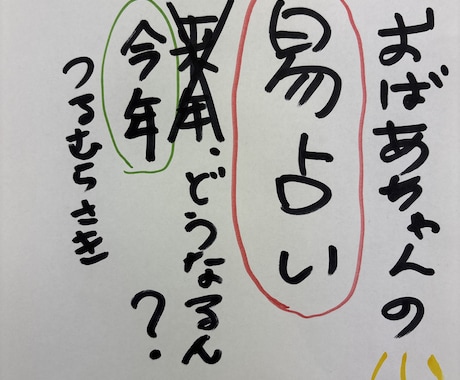 おばあちゃんの
易占い
来年、どうなるん？
今年
つるむらさき